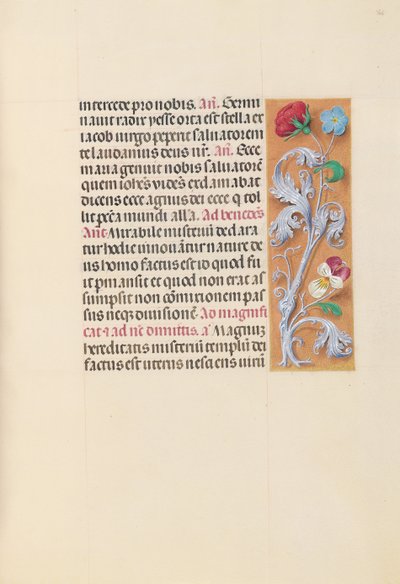 intercede pro nobis. An̄. Germi
nauit radix yesse orta est stella ex
iacob uirgo peperit saluatorem
te laudamus deus nr̄. An̄. Ecce
maria genuit nobis saluatorē
quem iohēs vidēs exclamabat
dicens ecce agnus dei ecce q tol
lit pcc̄a mundi all'a. Ad benedc̄s
Ant̄ Mirabile misteriū declara
tur hodie innouāntur nature de
us homo factus est id quod fu
it pmansit et quod non erat as
sumpsit non cōmixtionem pas
sus necz diuisionē. Ad magnifi
cat & ad nc̄ dimittis. a' Magnuz
hereditatis misteriū templū dei
factus est uterus nesciens uirū